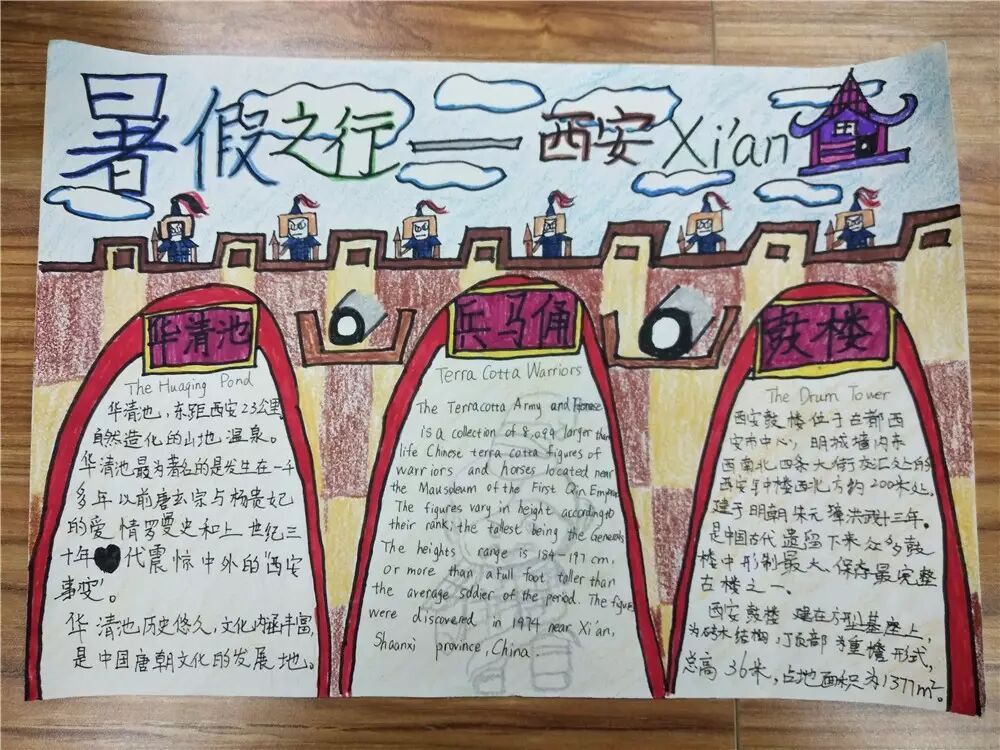 暑假之行——西安Xi'an
华清池
The Huaqing Pond
华清池，东距西安23公里
自然造化的山地温泉。
华清池最为著名的是发生在一千
多年以前唐玄宗与杨贵妃
的爱情罗曼史和上世纪三
十年代震惊中外的“西安
事变”。
华清池历史悠久，文化内涵丰富，
是中国唐朝文化的发展地。
兵马俑
Terra Cotta Warriors
The Terracotta Army and Horses
is a collection of 8,099 larger than
life Chinese terra cotta figures of
warriors and horses located near
the Mausoleum of the First Qin Emperor
The figures vary in height according to
their rank; the tallest being the Generals
The heights range is 184-197 cm,
or more than a full foot taller than
the average soldier of the period. The figure
were discovered in 1974 near Xi'an,
Shaanxi province, China.
鼓楼
The Drum Tower
西安鼓楼位于古都西
安市中心，明城墙内东
西南北四条大街交汇处的
西安钟楼西北方约200米处，
建于明朝朱元璋洪武十三年。
是中国古代遗留下来众多鼓
楼中形制最大、保存最完整
古楼之一。
西安鼓楼 建在方型基座上，
为砖木结构，顶部为重檐形式，
总高36米，占地面积为1377m²。